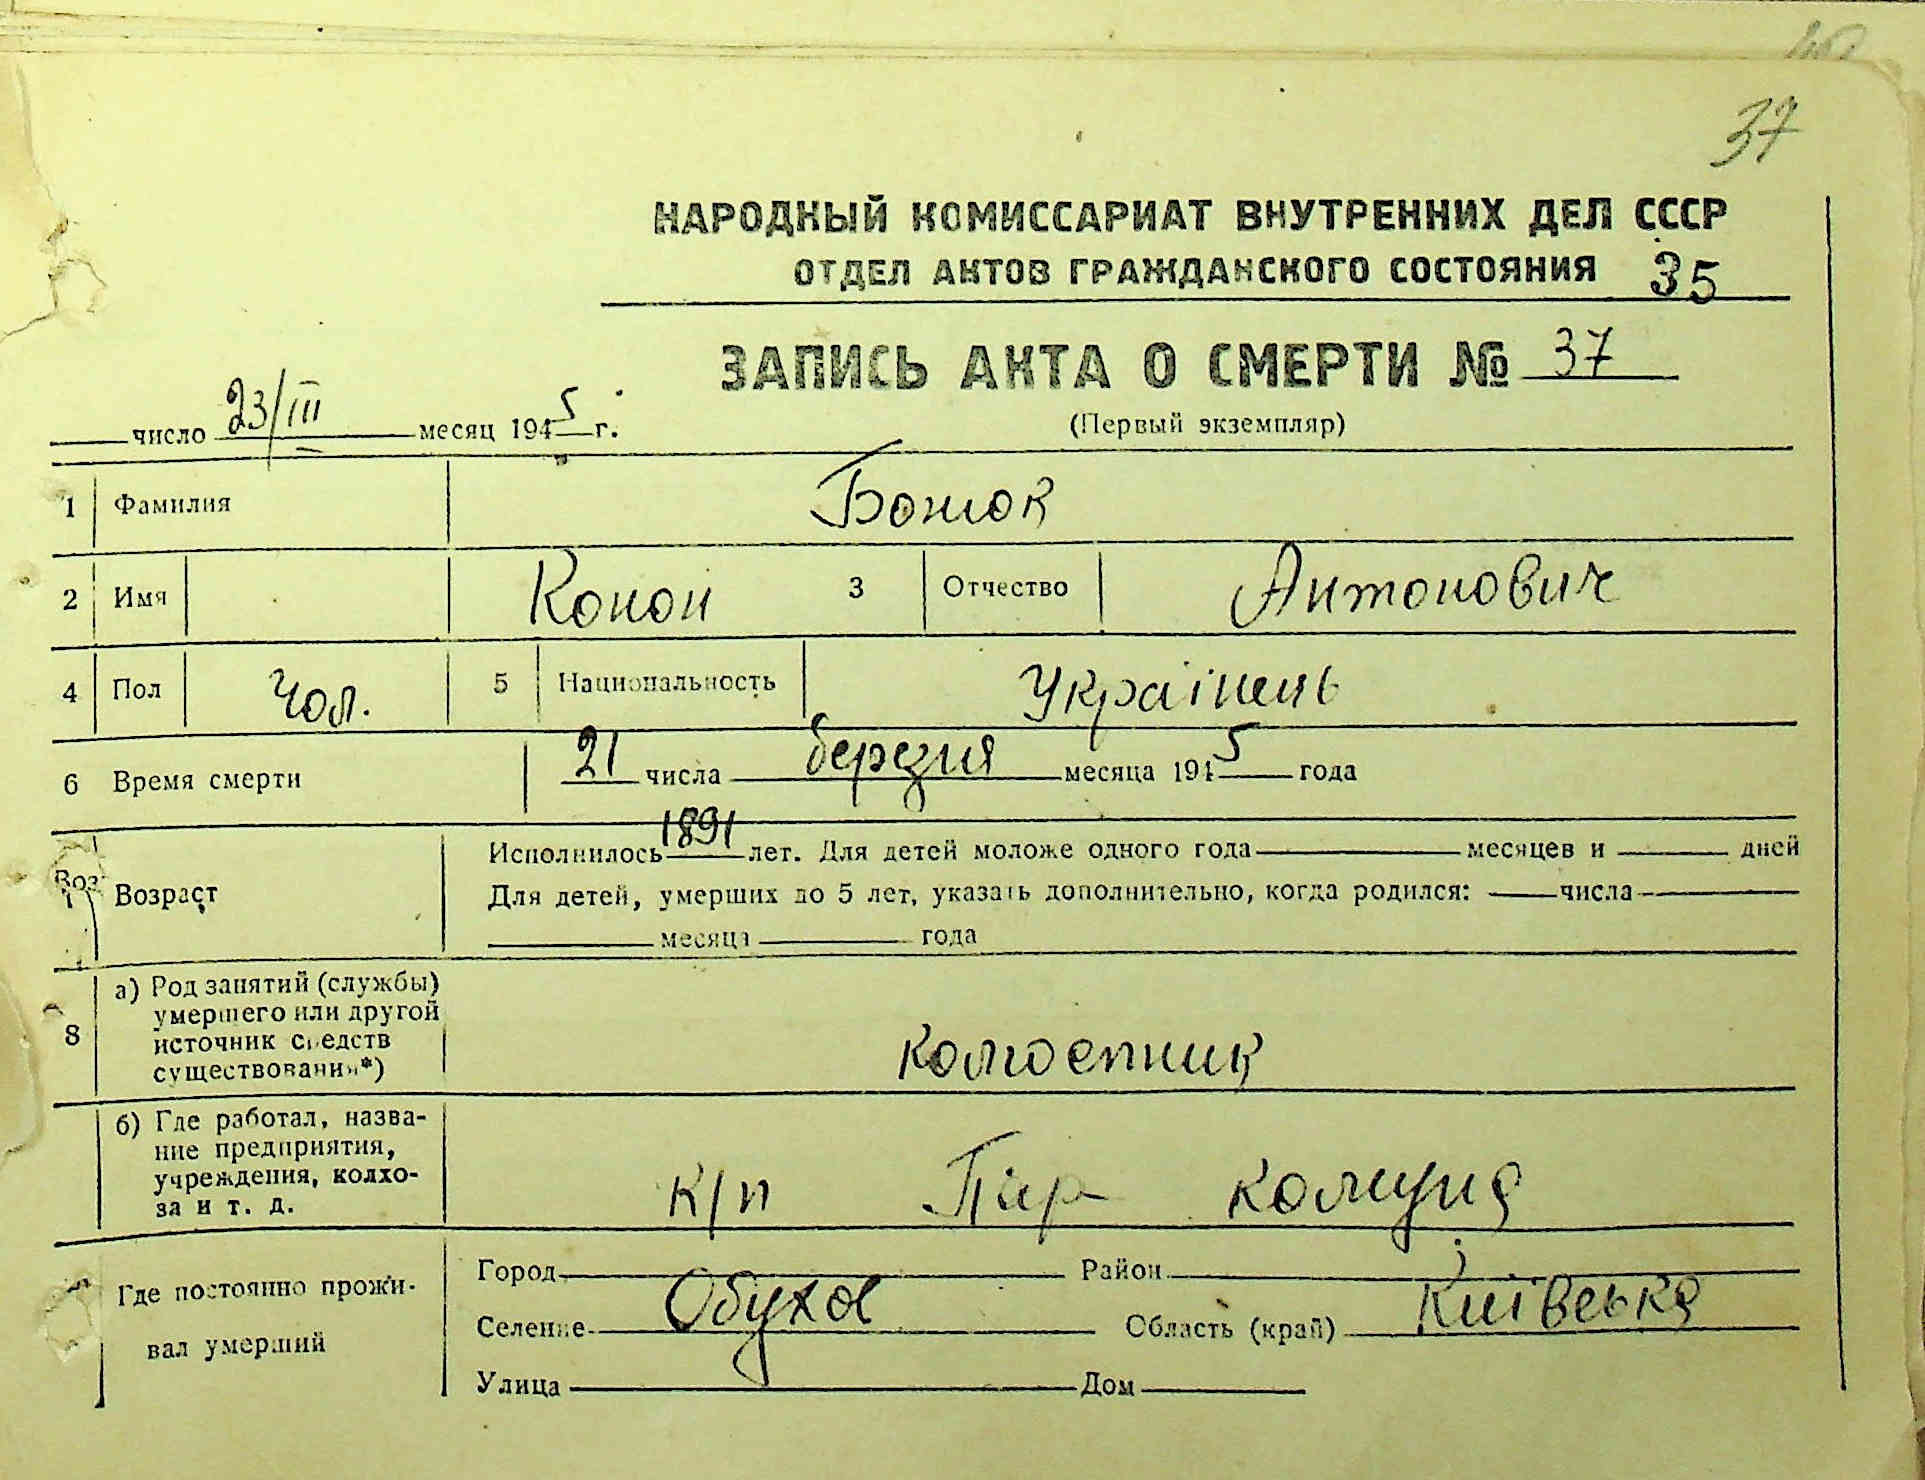 37
НАРОДНЫЙ КОМИССАРИАТ ВНУТРЕННИХ ДЕЛ СССР
ОТДЕЛ АКТОВ ГРАЖДАНСКОГО СОСТОЯНИЯ 35
ЗАПИСЬ АКТА О СМЕРТИ № 37
число 23/III месяц 1945 г.
(Первый экземпляр)
1 Фамилия Божок
2 Имя Конон 3 Отчество Антонович
4 Пол Чол. 5 Национальность Українець
6 Время смерти 21 числа березня месяца 1945 года
Исполнилось 1891 лет. Для детей моложе одного года месяцев и дней
Возраст Для детей, умерших до 5 лет, указать дополнительно, когда родился: числа
месяца года
8 а) Род занятий (службы)
умершего или другой
источник средств
существования*)
колгоспник
б) Где работал, назва-
ние предприятия,
учреждения, колхо-
за и т. д.
к/п комуна
Где постоянно прожи-
вал умерший
Город Район
Селение Обухов Область (край) Київська
Улица Дом